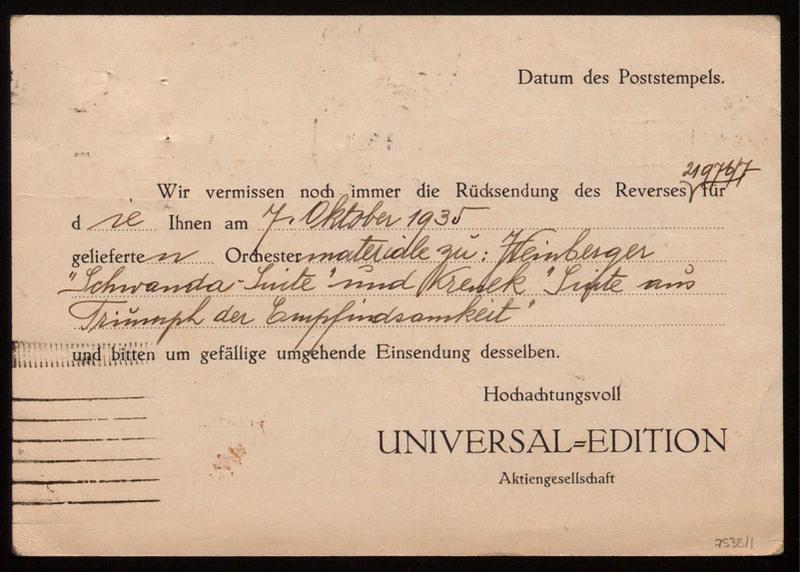 Datum des Poststempels.
21976/7
Wir vermissen noch immer die Rücksendung des Reverses für
die Ihnen am 7. Oktober 1935
gelieferten Orchestermateriale zu: Weinberger
"Schwanda-Suite" und Krenek "Suite aus
Triumph der Empfindsamkeit"
und bitten um gefällige umgehende Einsendung desselben.
Hochachtungsvoll
UNIVERSAL=EDITION
Aktiengesellschaft
7538/1